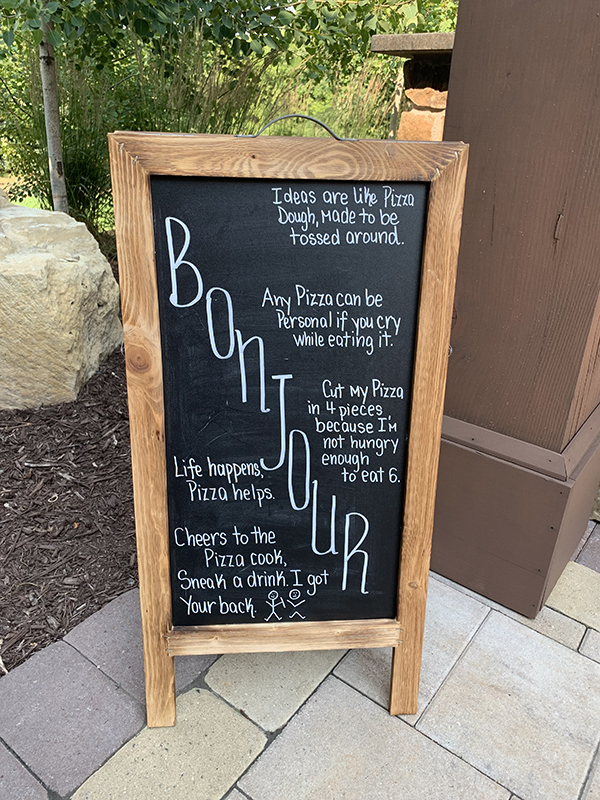 Ideas are like Pizza
Dough, Made to be
tossed around.
BonJour
Any Pizza can be
Personal if you cry
while eating it.
Cut My Pizza
in 4 pieces
because I'm
not hungry
enough
to eat 6.
Life happens,
Pizza helps.
Cheers to the
Pizza cook,
Sneak a drink. I got
Your back.